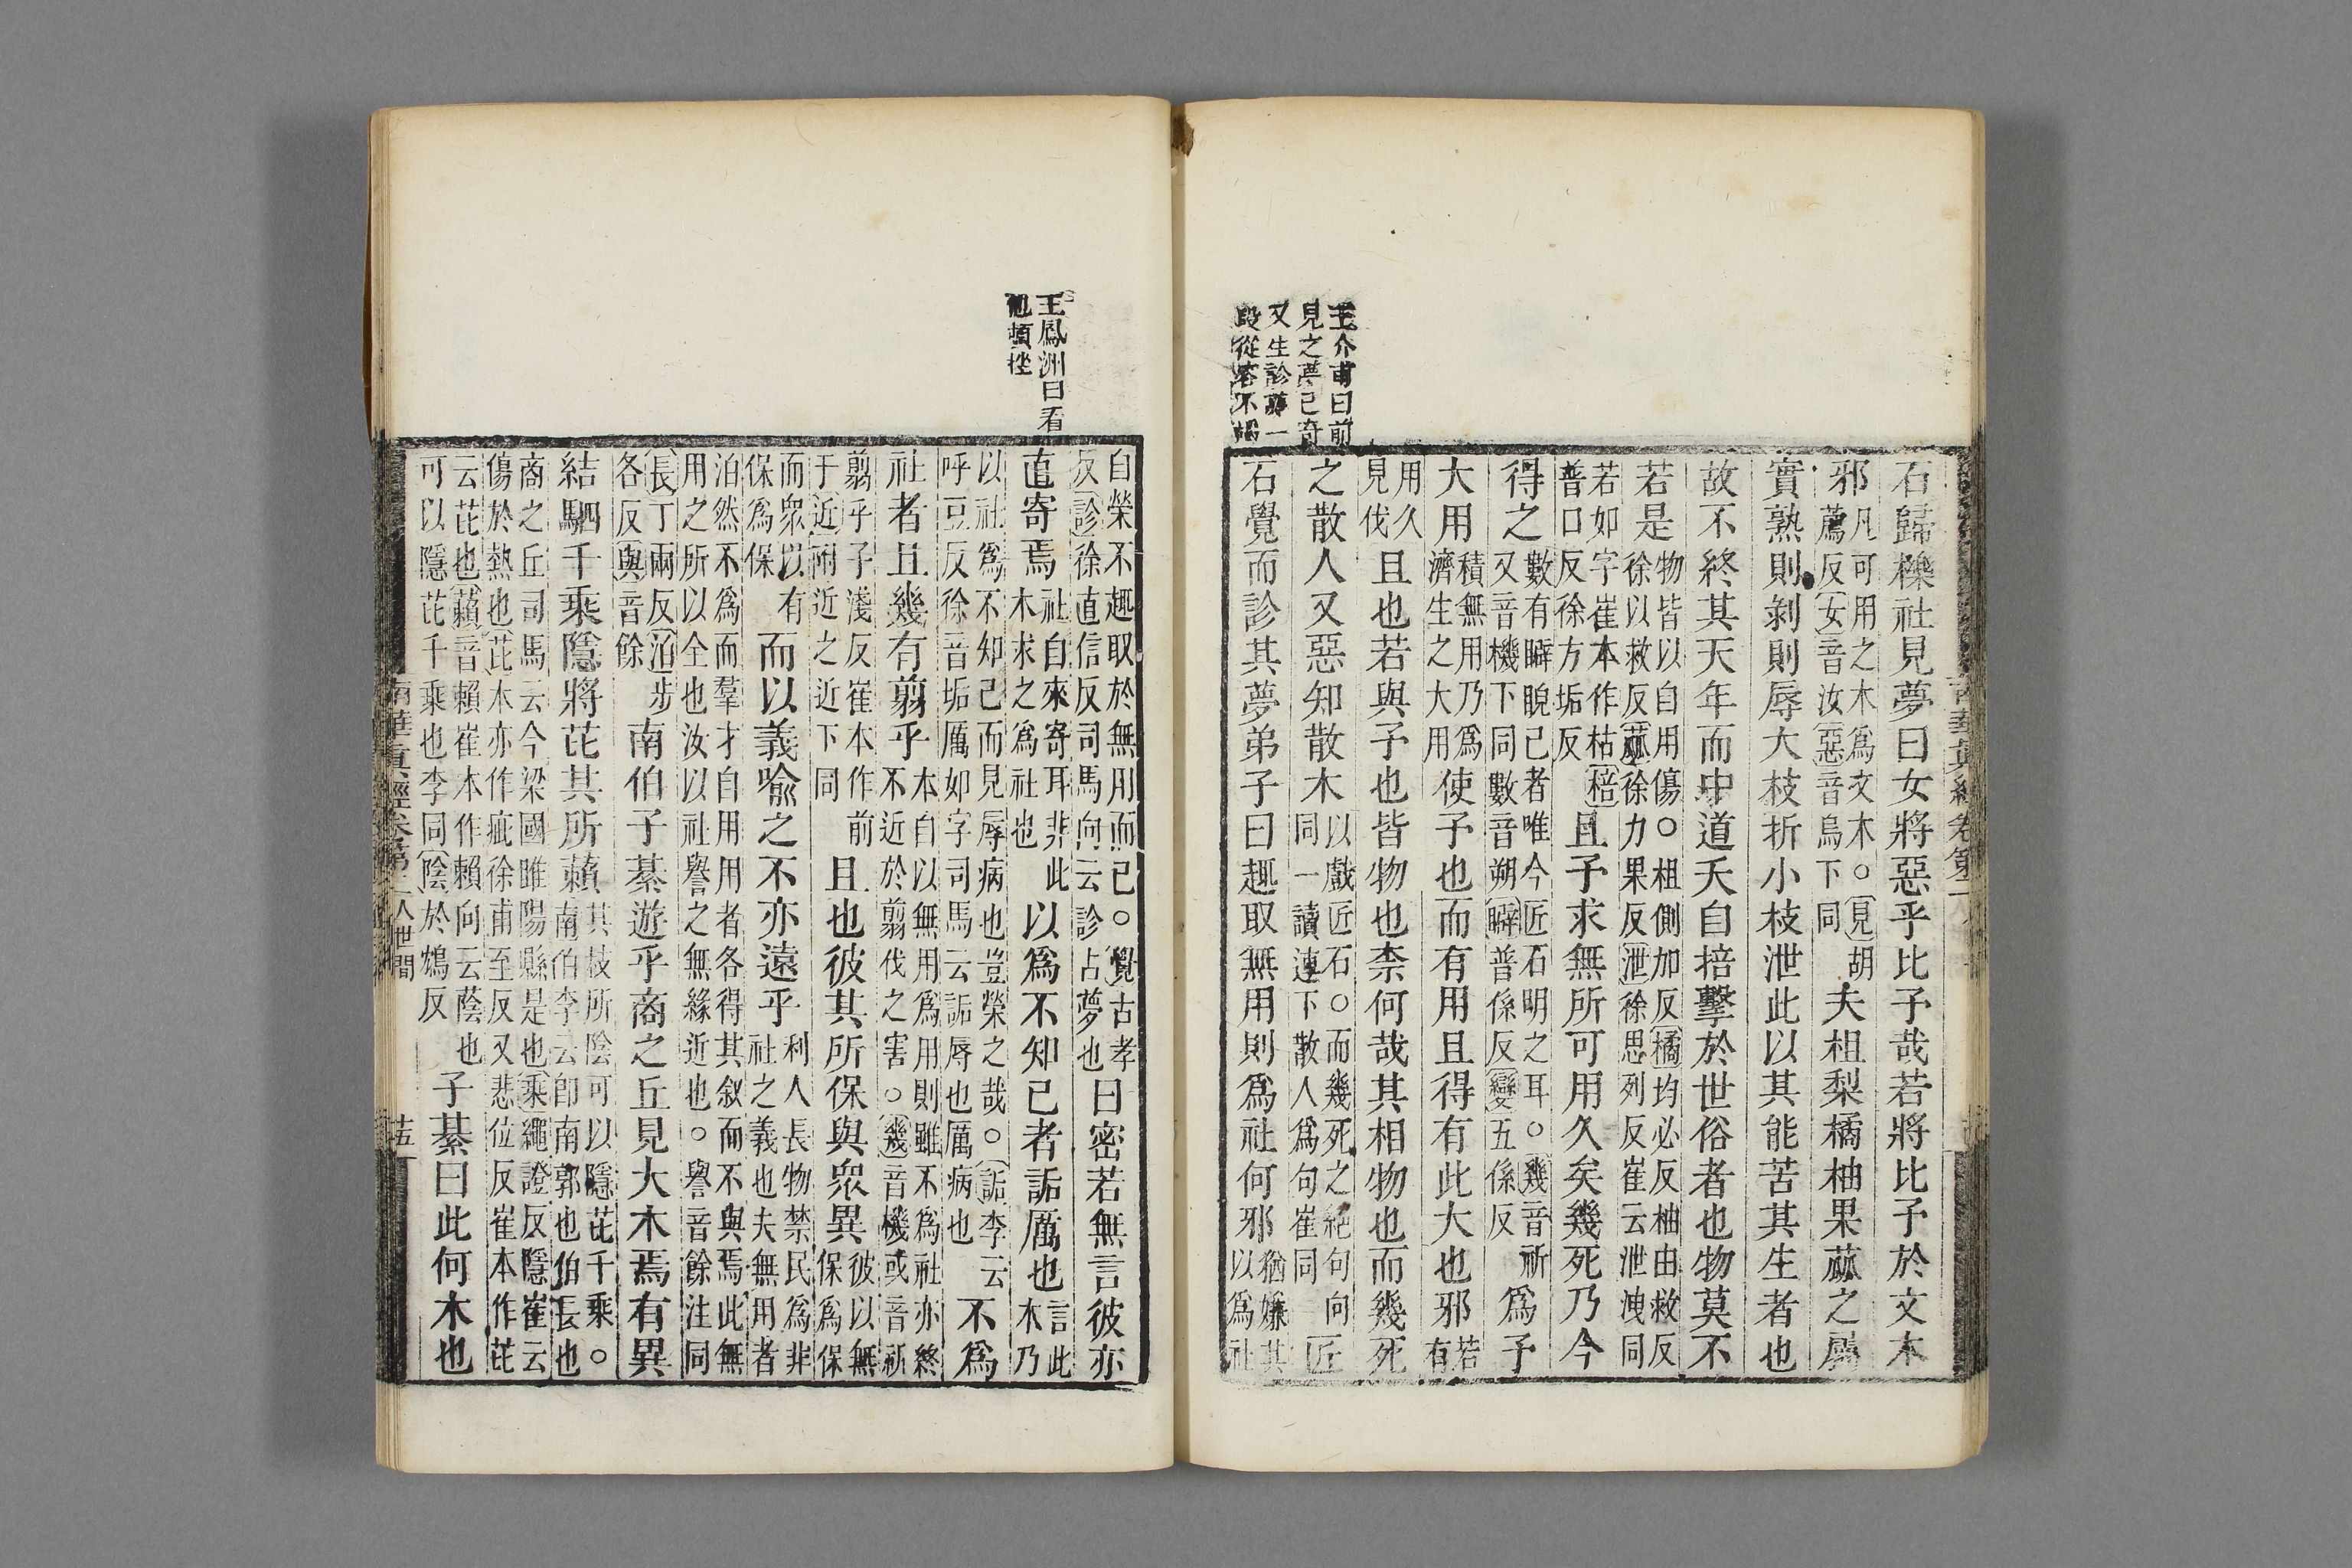 王介甫曰前
見之夢已奇
又生診夢一
段從容不
石歸櫟社見夢曰女將惡乎比予哉若將比予於文木
邪凡可用之木爲文木○見胡薦反女音汝惡音烏下同夫柤梨橘柚果蓏之屬
實熟則剝則辱大枝折小枝泄此以其能苦其生者也
故不終其天年而中道夭自掊擊於世俗者也物莫不
若是物皆以自用傷○柤側加反橘均必反柚由救反徐以救反蓏徐力果反泄徐思列反崔云泄洩同
若如字崔本作枯掊普口反徐方垢反且予求無所可用久矣幾死乃今
得之數有瞬睨己者唯今匠石明之耳○幾音祈又音機下同數音朔瞬普係反睨五係反爲予
大用積無用乃爲濟生之大用使予也而有用且得有此大也邪若有
用久見伐且也若與予也皆物也柰何哉其相物也而幾死
之散人又惡知散木以戲匠石○而幾死之絕句向同一讀連下散人爲句崔同匠
石覺而診其夢弟子曰趣取無用則爲社何邪猶嫌其以爲社
南華眞經卷第二
王鳳洲曰看
他頓挫
自榮不趣取於無用而已○覺古孝反診徐直信反司馬向云診占夢也曰密若無言彼亦
直寄焉社自來寄耳非此木求之爲社也以爲不知已者詬厲也言此木乃
以社爲不知己而見辱病也豈榮之哉○詬李云呼豆反徐音垢厲如字司馬云詬辱也厲病也不爲
社者且幾有翦乎本自以無用爲用則雖不爲社亦終不近於翦伐之害○幾音機或音祈
翦乎子淺反崔本作前于近附近之近下同且也彼其所保與衆異彼以無保爲保
而衆以有保爲保而以義喻之不亦遠乎利人長物禁民爲非社之義也夫無用者
泊然不爲而羣才自用用者各得其叙而不與焉此無用之所以全也汝以社譽之無緣近也○譽音餘注同
長丁兩反泊步各反與音餘南伯子綦遊乎商之丘見大木焉有異
結駟千乘隱將芘其所藾其枝所陰可以隱芘千乘○南伯李云卽南郭也伯長也
商之丘司馬云今梁國睢陽縣是也乘繩證反隱崔云傷於熱也芘本亦作疵徐甫至反又悲位反崔本作芘
云芘也藾音賴崔本作賴向云蔭也可以隱芘千乘也李同陰於鴆反子綦曰此何木也
南華眞經卷第二人世間